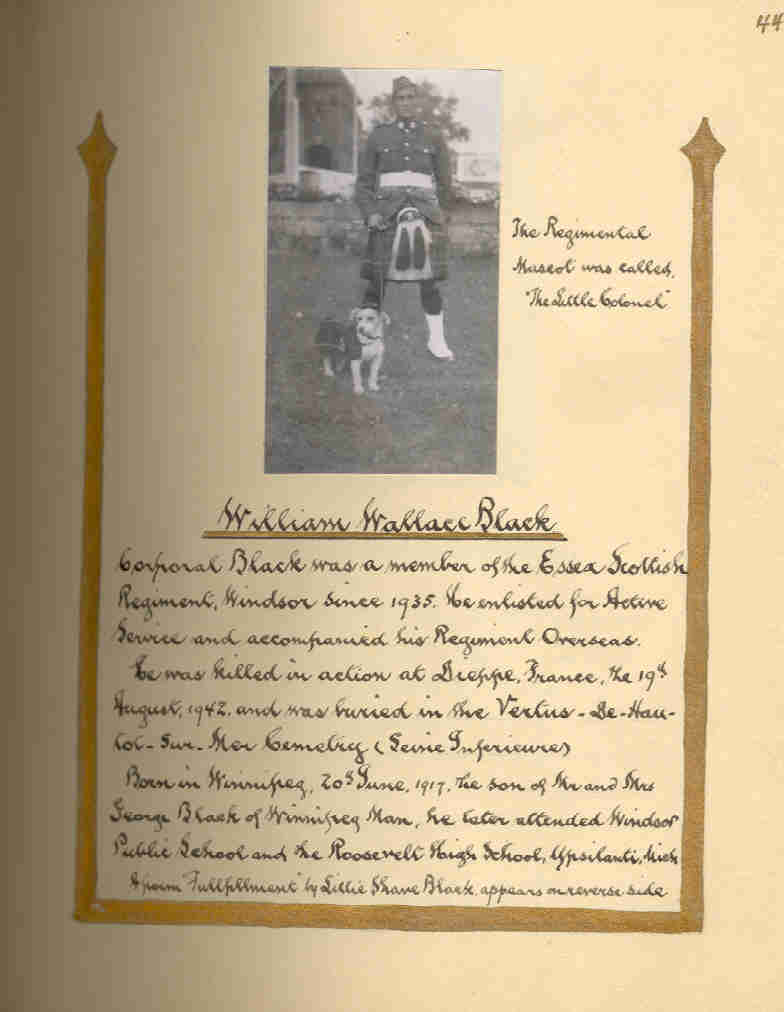 44
The Regimental
Mascot was called,
"The Little Colonel"
William Wallace Black
Corporal Black was a member of the Essex Scottish
Regiment, Windsor since 1935. He enlisted for Active
Service and accompanied his Regiment Overseas.
He was killed in action at Dieppe, France, the 19th
August, 1942. and was buried in the Vertus-De-Hau-
tot-Sur-Mer Cemetry (Seine Inferieure)
Born in Winnipeg, 20th June, 1917, the son of Mr and Mrs
George Black of Winnipeg Man, he later attended Windsor
Public School and the Roosevelt High School, Ypsilanti, Mich
A poem "Fullfillment" by Lillie Shave Black, appears on reverse side